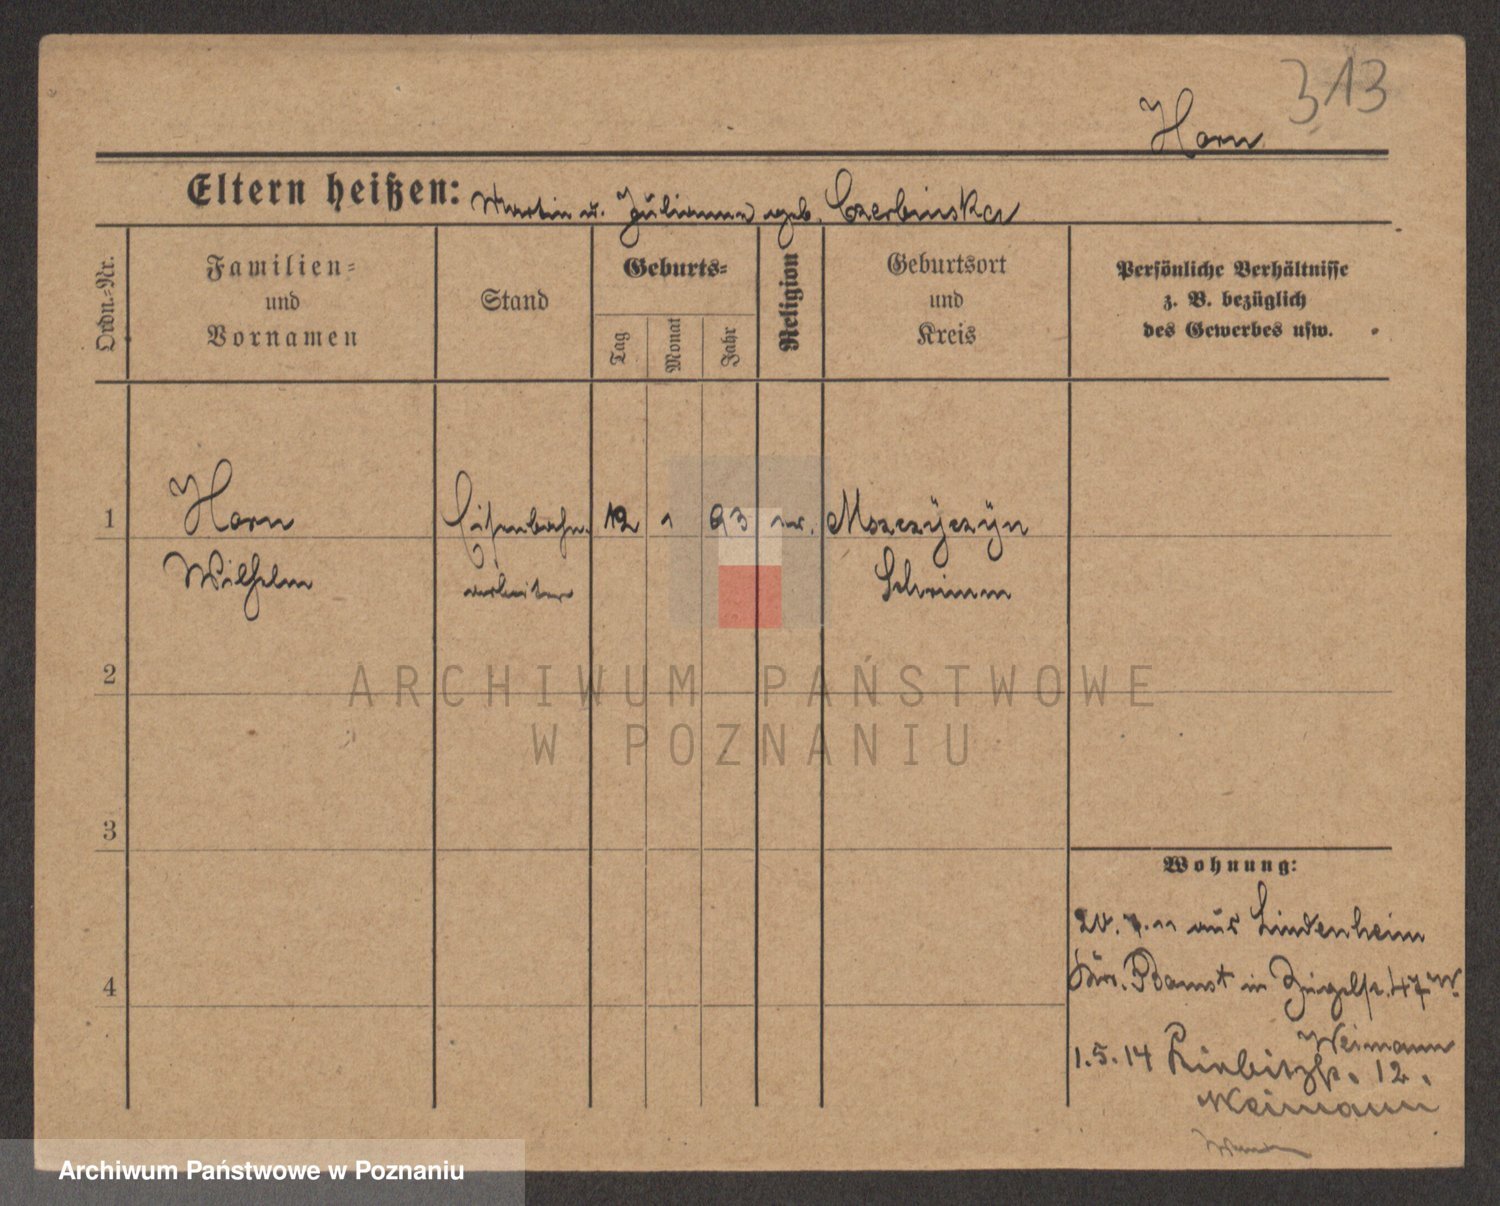 313
Horn
Eltern heißen: Martin u. Julianna geb. Czerbinska
Ordn.-Nr.
Familien- und Vornamen
Stand
Geburts-
Tag
Monat
Jahr
Religion
Geburtsort und Kreis
Persönliche Verhältnisse z. B. bezüglich des Gewerbes usw.
1 Horn Eisenbahn- 12 1 93 ev. Mszczyczyn
Wilhelm arbeiter Schrimm
2
3
4
Wohnung:
20. 7. 11 aus Lindenheim
Krs. Bomst in Ziegelstr. 47 W.
Weimann
1.5.14 12.
Weimann
ARCHIWUM PAŃSTWOWE
W POZNANIU
Archiwum Państwowe w Poznaniu